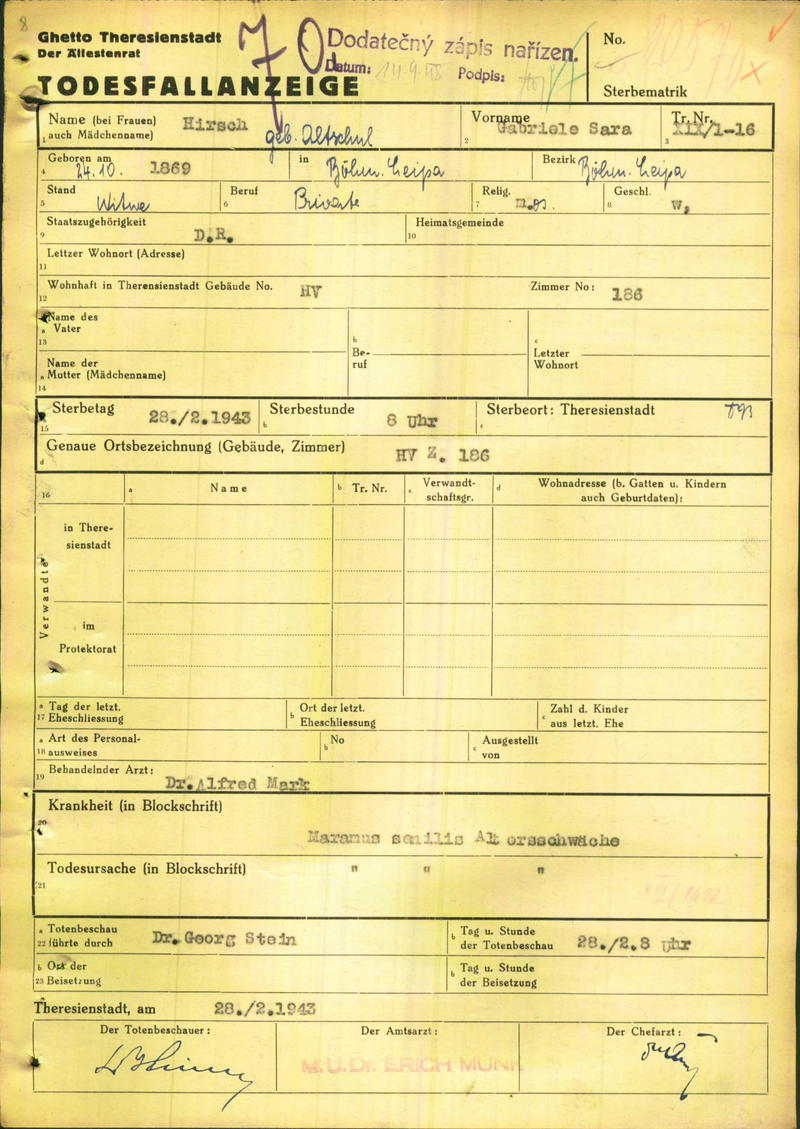 8
Ghetto Theresienstadt
Der Ältestenrat
TODESFALLANZEIGE
Dodatečný zápis nařízen.
Datum: 14.9.48 Podpis:
No.
Sterbematrik
Name (bei Frauen) Hirsch geb. Altschul
1 auch Mädchenname)
Vorname Gabriele Sara
2
Tr. Nr. XIX/1-16
3
Geboren am 24.10. 1869
4
in Böhm. Leipa
Bezirk Böhm. Leipa
Stand Witwe
5
Beruf Private
6
Relig.
7
Geschl. w,
8
Staatszugehörigkeit D.R.
9
Heimatsgemeinde
10
Lettzer Wohnort (Adresse)
11
Wohnhaft in Therensienstadt Gebäude No. HV
12
Zimmer No: 186
Name des
a Vater
13
b
Be-
ruf
c
Letzter
Wohnort
Name der
a Mutter (Mädchenname)
14
Sterbetag 28./2.1943
15
Sterbestunde 8 Uhr
b
Sterbeort: Theresienstadt
c
Genaue Ortsbezeichnung (Gebäude, Zimmer) HV Z. 186
d
16
a Name
b Tr. Nr.
c Verwandt-
schaftsgr.
d Wohnadresse (b. Gatten u. Kindern
auch Geburtdaten):
Verwandte
in There-
sienstadt
im
Protektorat
a Tag der letzt.
17 Eheschliessung
b Ort der letzt.
Eheschliessung
c Zahl d. Kinder
aus letzt. Ehe
a Art des Personal-
18 ausweises
b No
c Ausgestellt
von
19 Behandelnder Arzt: Dr.Alfred Mark
Krankheit (in Blockschrift)
20
Maramus senilis Altersschwäche
Todesursache (in Blockschrift) " " "
21
a Totenbeschau
22 führte durch Dr. Georg Stein
b Tag u. Stunde
der Totenbeschau 28./2.8 Uhr
b Ort der
23 Beisetzung
b Tag u. Stunde
der Beisetzung
Theresienstadt, am 28./2.1943
Der Totenbeschauer:
Der Amtsarzt:
M.U.Dr. ERICH MUNK
Der Chefarzt: